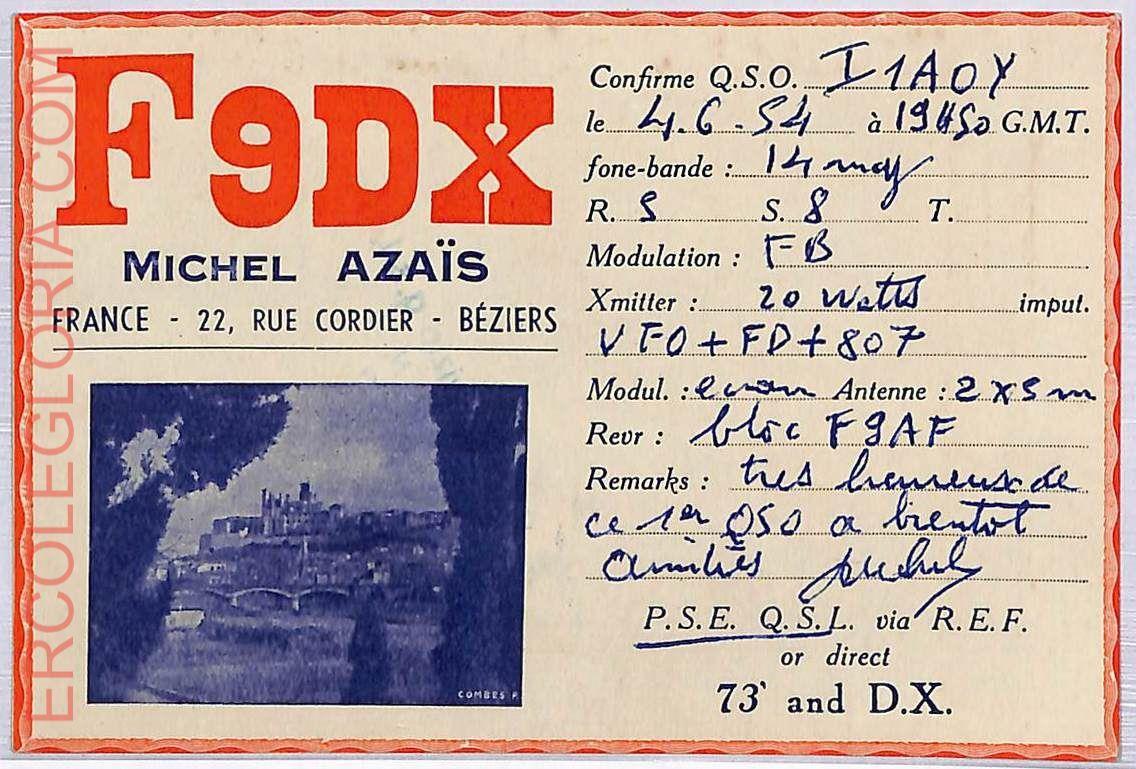 F9DX
MICHEL AZAÏS
FRANCE - 22, RUE CORDIER - BÉZIERS
COMBES P.
Confirme Q.S.O. I1AOY
le 4.6.54 à 19H50 G.M.T.
fone-bande : 14
R. 5 S. 8 T.
Modulation : FB
Xmitter : 20 watts imput.
VFO + FD + 807
Modul. : ecran Antenne : 2 x 5 m
Revr : bloc F9AF
Remarks : tres heureux de
ce 1er QSO a bientot
amitiés Michel
P.S.E. Q.S.L. via R.E.F.
or direct
73' and D.X.
ERCOLEGLORIA.COM